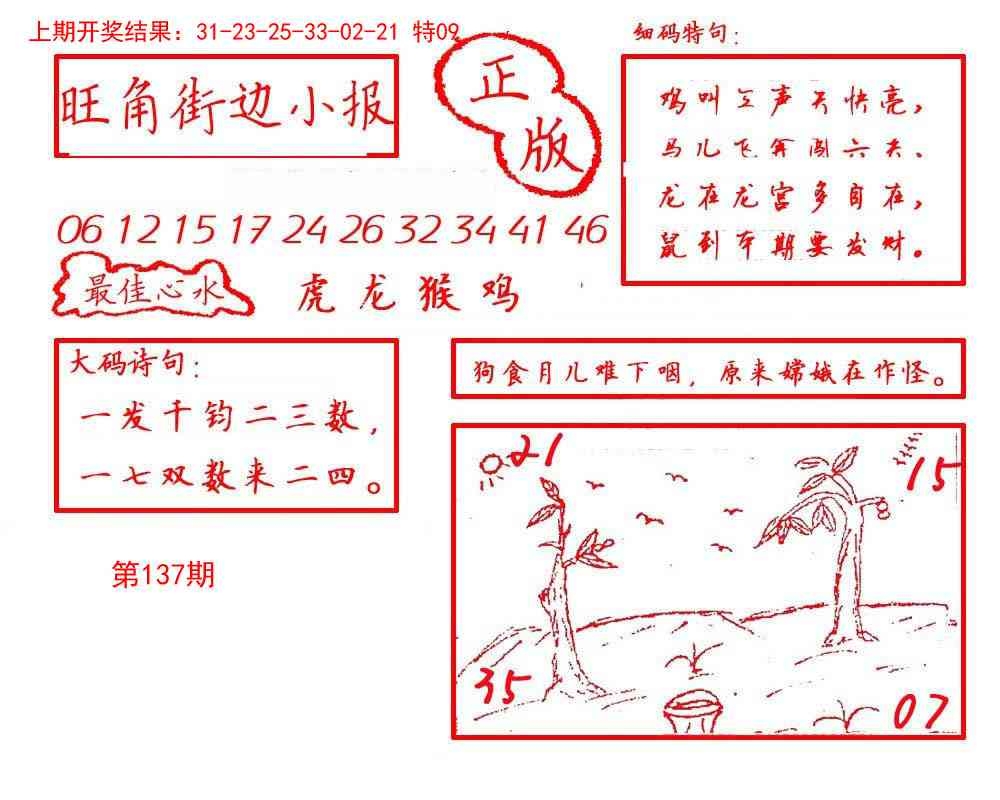 上期开奖结果：31-23-25-33-02-21 特09
细码特句：
旺角街边小报
正版
鸡叫三声天快亮，
马儿飞奔闯六关、
龙在龙宫多自在，
鼠到本期要发财。
06 12 15 17 24 26 32 34 41 46
最佳心水
虎龙猴鸡
大码诗句：
一发千钧二三数，
一七双数来二四。
狗食月儿难下咽，原来嫦娥在作怪。
21
15
35
07
第137期